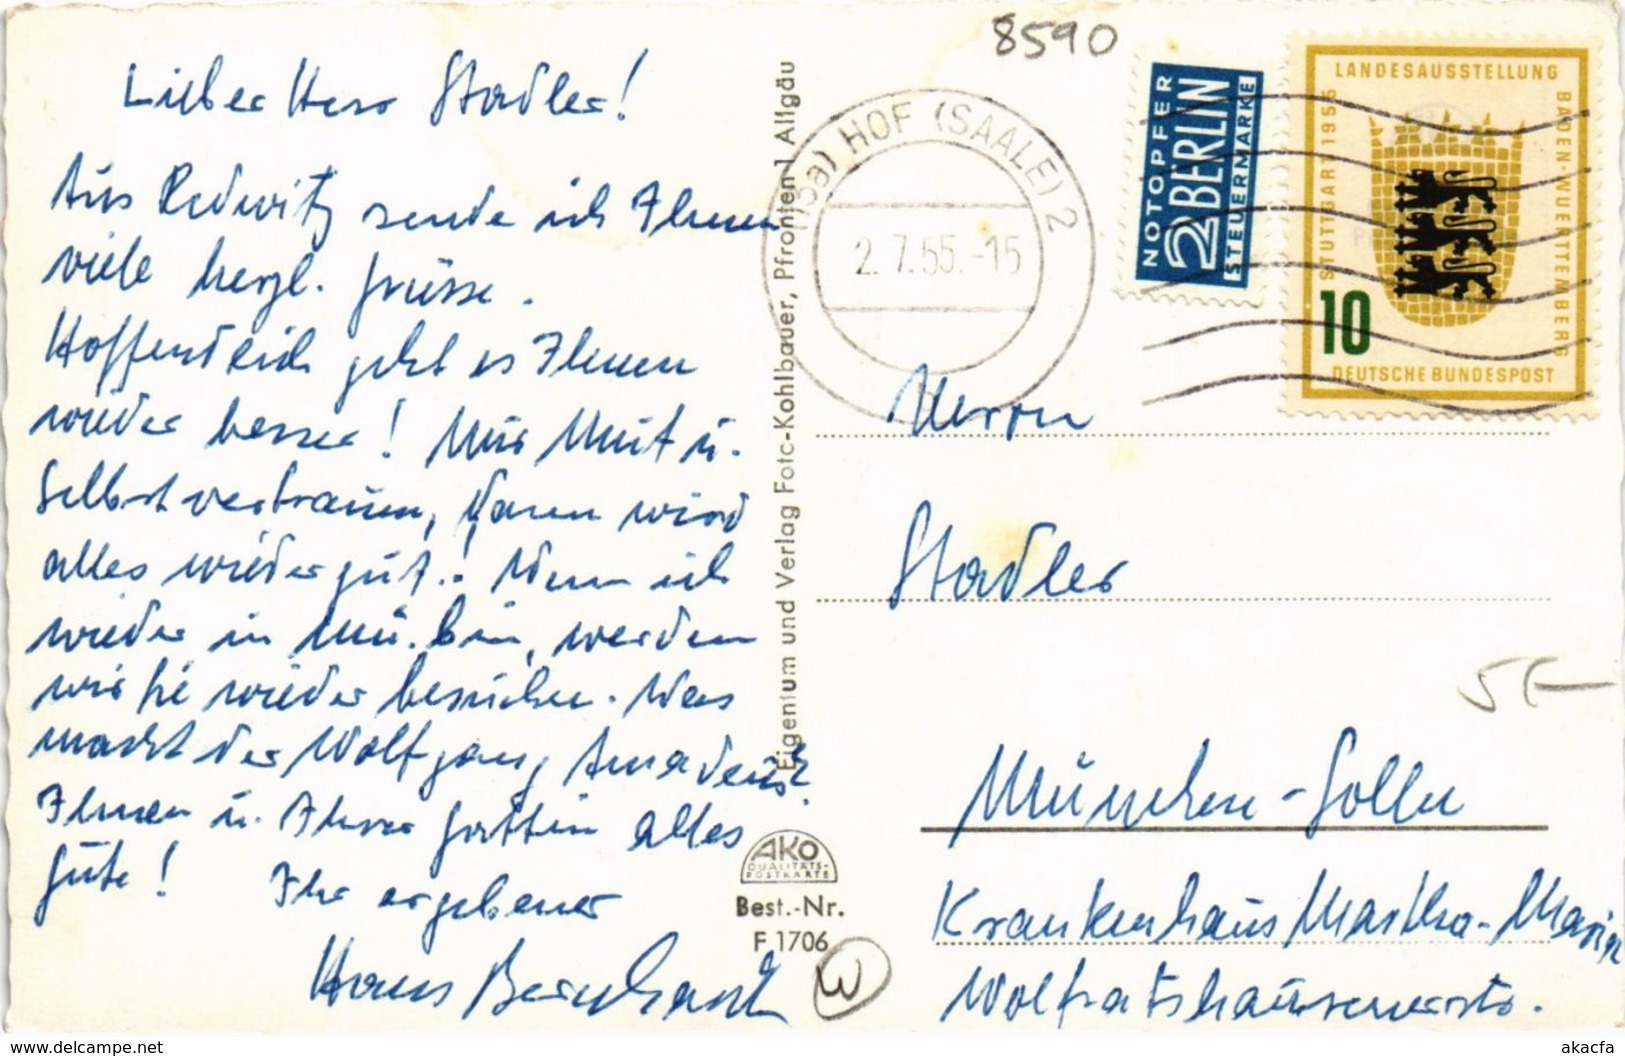 Lieber Herr Stadler!
Aus Redwitz sende ich Ihnen
viele herzl. Grüsse.
Hoffentlich geht es Ihnen
wieder besser! Nur Mut u.
Selbstvertrauen, dann wird
alles wieder gut! Wenn ich
wieder in Mü. bin, werden
wir Sie wieder besuchen. Was
macht der Wolfgang Amadeus?
Ihnen u. Ihrer Gattin alles
Gute! Ihr ergebener
Hans Bernhardt
Eigentum und Verlag Foto-Kohlbauer, Pfronten Allgäu
AKO
QUALITÄTS-
POSTKARTE
Best.-Nr.
F 1706
3
8590
HOF (SAALE) 2
2.7.55.-15
NOTOPFER
2 BERLIN
STEUERMARKE
LANDESAUSSTELLUNG
BADEN-WUERTTEMBERG
STUTTGART 1955
10
DEUTSCHE BUNDESPOST
Herrn
Stadler
München-Solln
Krankenhaus Martha-Maria
Wolfratshauserstr.
akacfa
delcampe.net